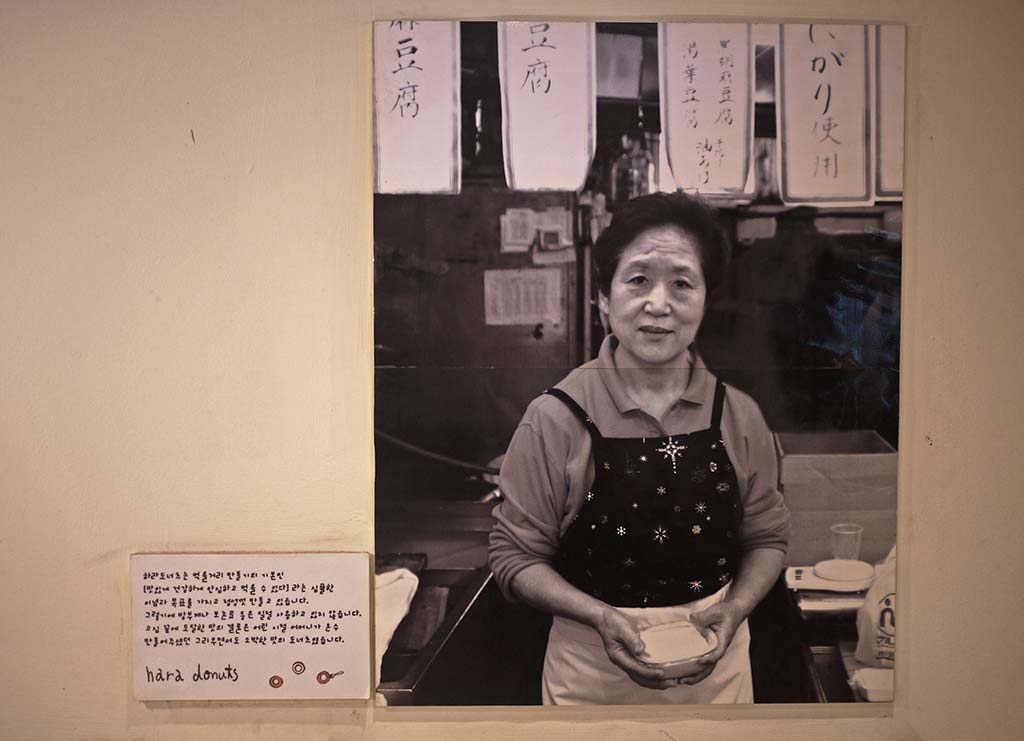 豆腐
豆腐
胡麻豆腐
湯葉豆腐
がり使用
하라도너츠는 먹을거리 만들기의 기본인
[맛있게 건강하게 안심하고 먹을 수 있다] 라는 심플한
이념과 목표를 가지고 정성껏 만들고 있습니다.
그렇기에 방부제나 보존료 등은 일절 사용하고 있지 않습니다.
고심 끝에 도달한 맛의 결론은 어린 시절 어머니가 손수
만들어주셨던 그리우면서도 소박한 맛의 도너츠였습니다.
hara donuts